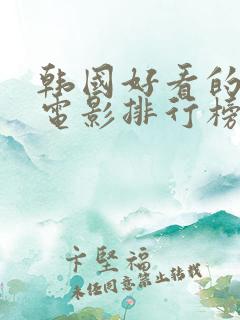 韩國好看的
電影排行榜
卞堅福
未经同意禁止转载